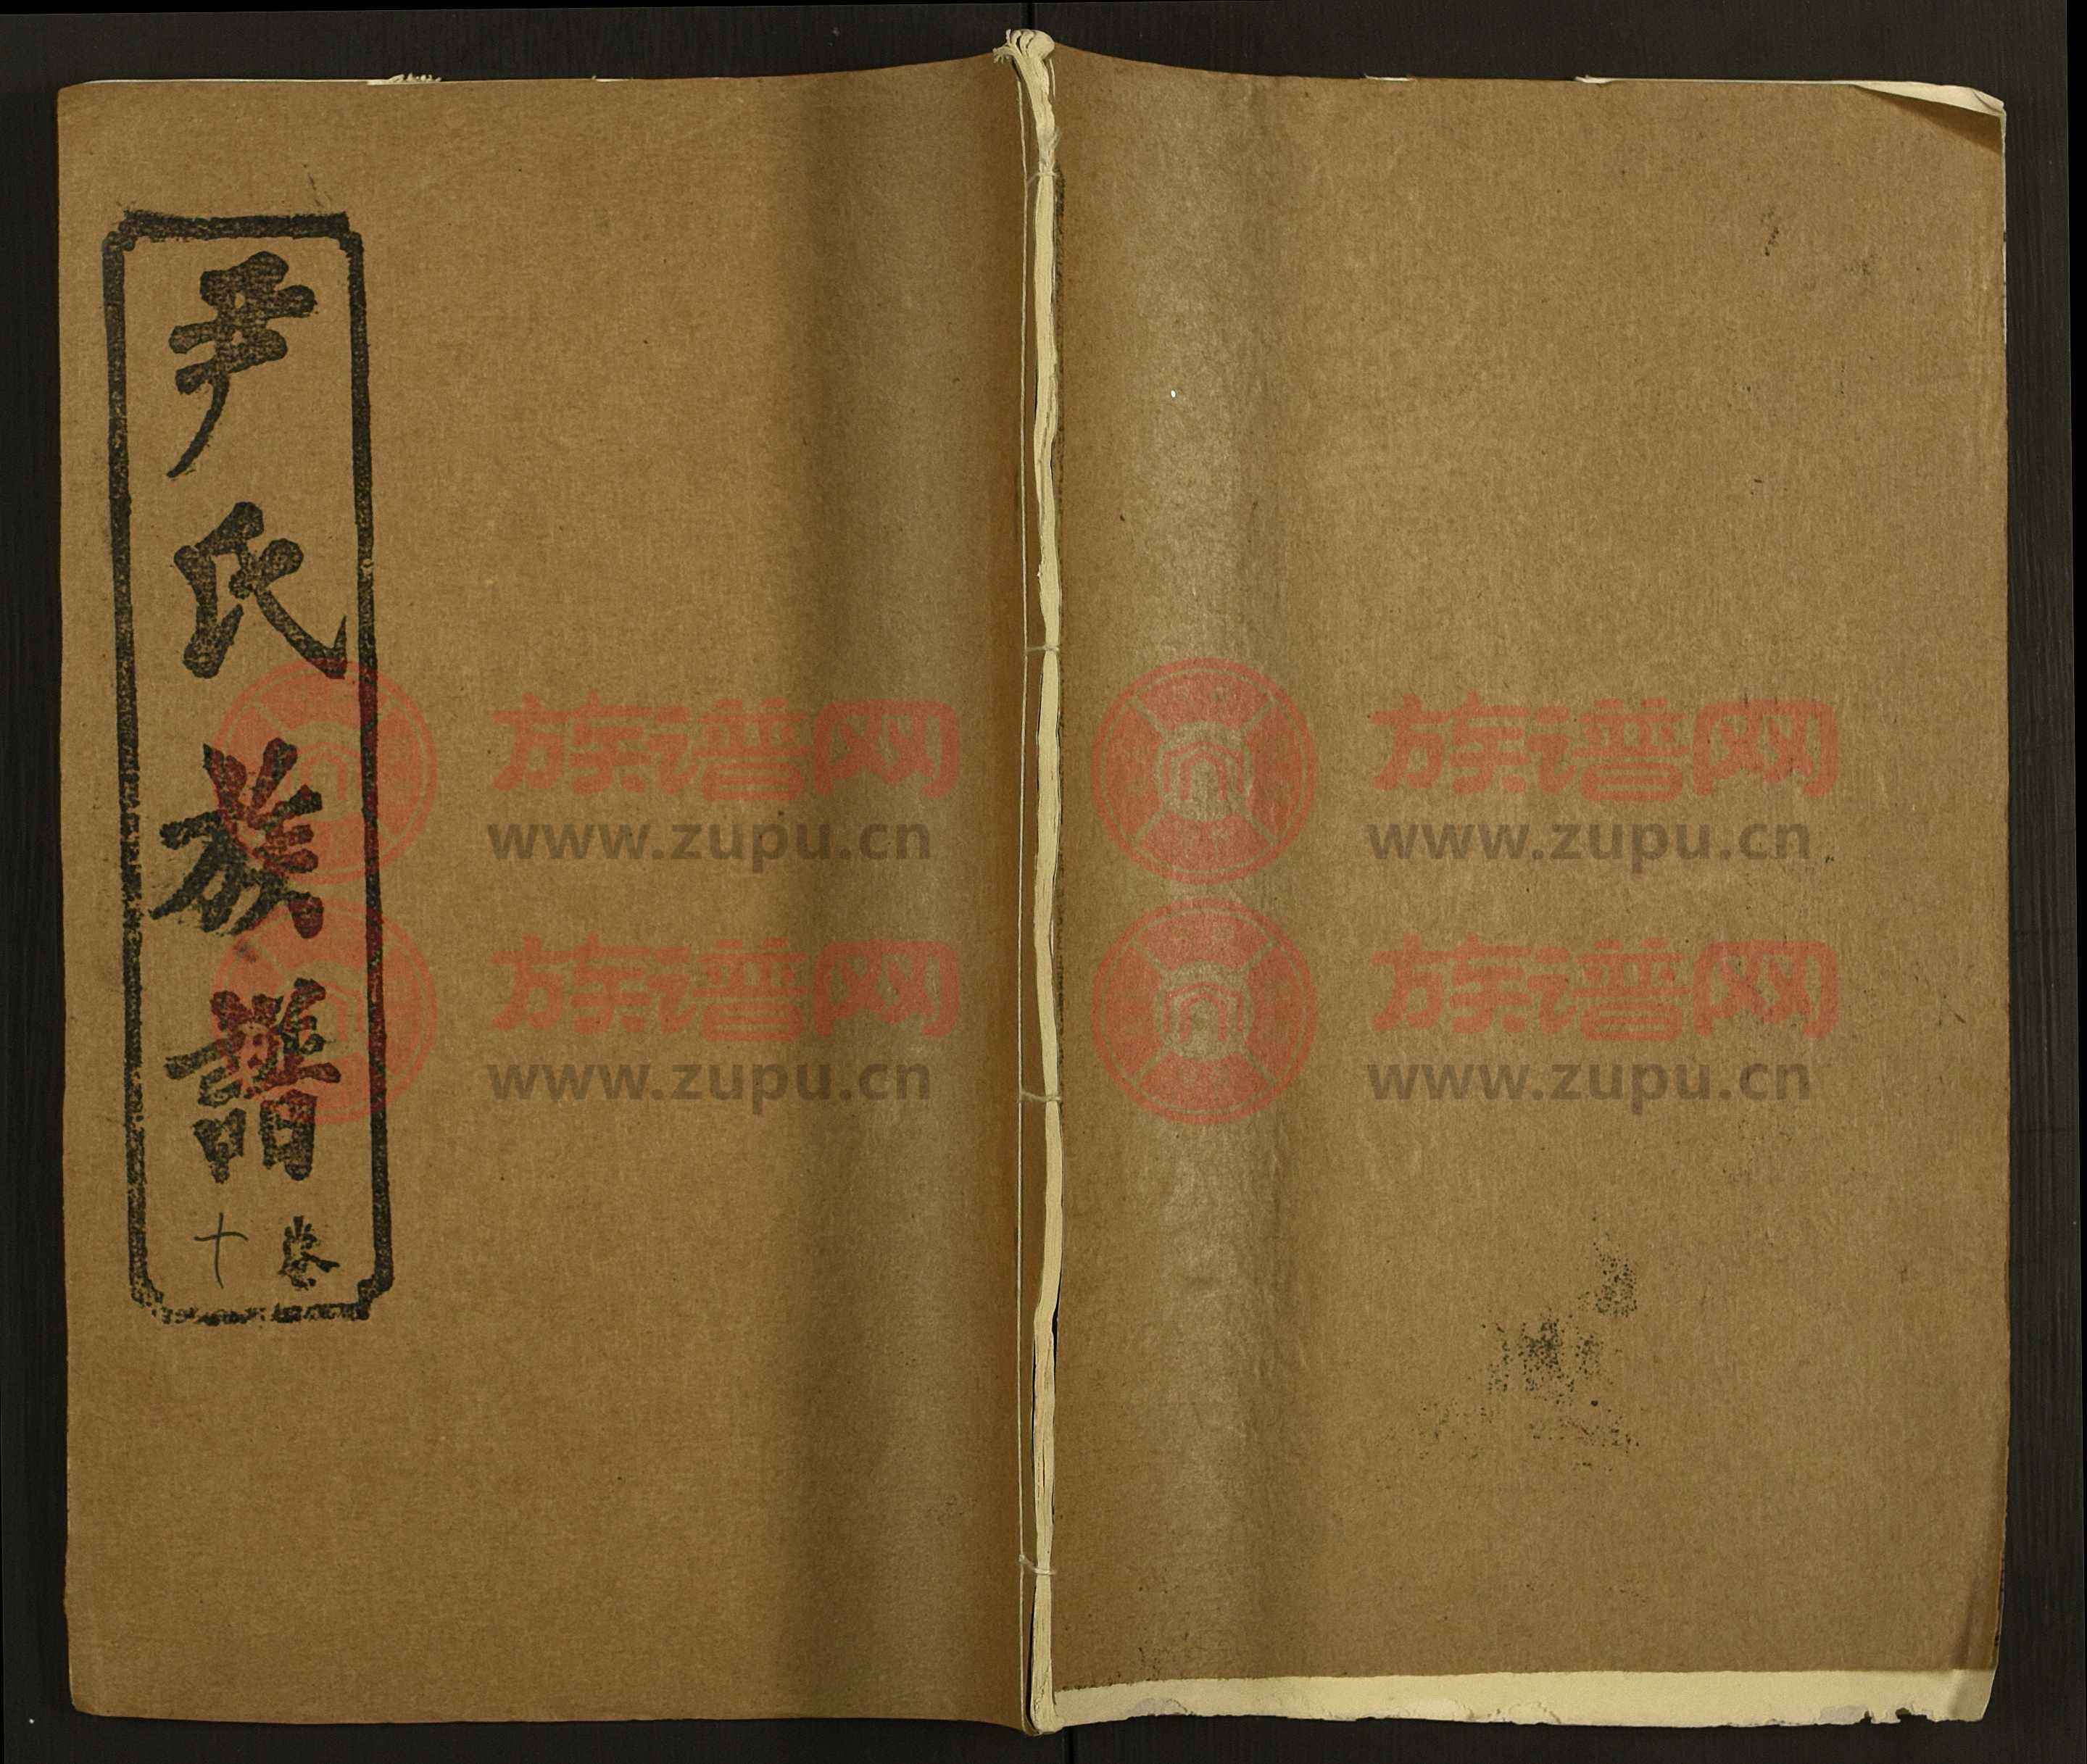 尹氏族譜
卷
十
族谱网
www.zupu.cn
族谱网
www.zupu.cn
族谱网
www.zupu.cn
族谱网
www.zupu.cn